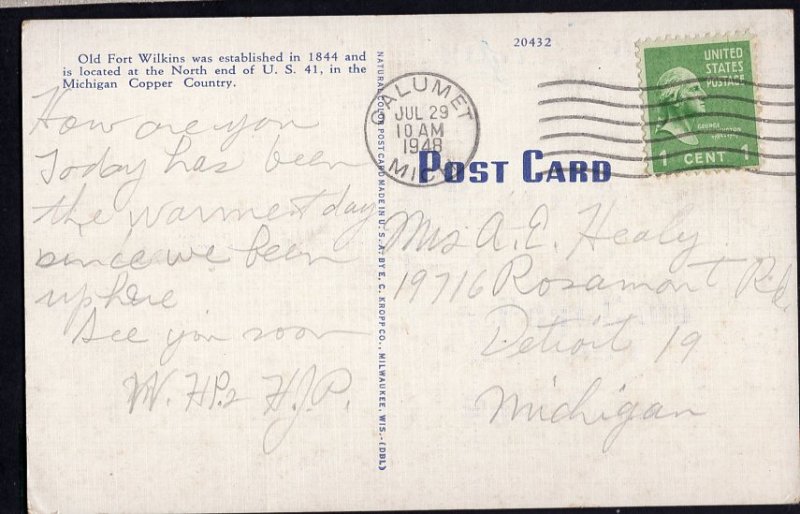 Old Fort Wilkins was established in 1844 and
is located at the North end of U. S. 41, in the
Michigan Copper Country.
20432
CALUMET
JUL 29
10 AM
1948
MICH
UNITED
STATES
POSTAGE
GEORGE
WASHINGTON
1 CENT 1
POST CARD
How are you
Today has been
the warmest day
since we been
up here
See you soon
W. H.P. H.J.P.
NATURAL COLOR POST CARD MADE IN U. S. A. BY E. C. KROPP CO., MILWAUKEE, WIS.-(DBL)
Mrs A. E. Healy
19716 Rosamont Rd.
Detroit 19
Michigan